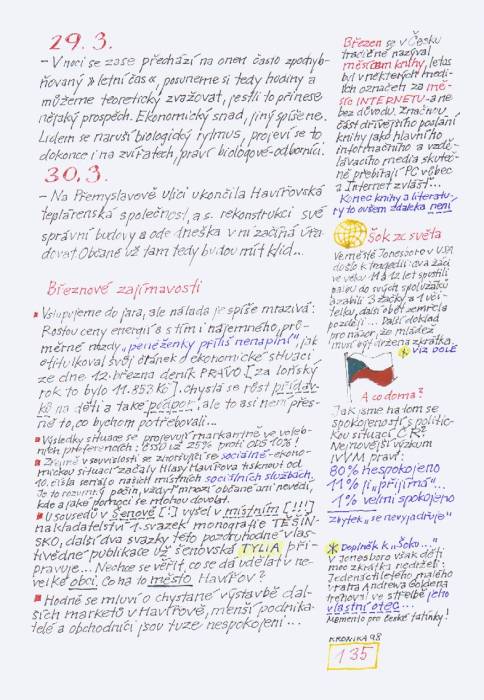 29. 3.
- V noci se zase přechází na onen často zpochyb-
ňovaný "letní čas", posuneme si tedy hodiny a
můžeme teoreticky zvažovat, jestli to přinese
nějaký prospěch. Ekonomický snad, jiný spíše ne.
Lidem se naruší biologický rytmus, projeví se to
dokonce i na zvířatech, praví biologové-odborníci.
30. 3.
- Na Přemyslovově ulici ukončila Havířovská
teplárenská společnost, a.s. rekonstrukci své
správní budovy a ode dneška v ní začíná úřa-
dovat. Občané už tam tedy budou mít klid...
Březnové zajímavosti
Vstupujeme do jara, ale nálada je spíše mrazivá:
Rostou ceny energií a s tím i nájemného, prů-
měrné mzdy "peněženky příliš nenaplní" jak
otitulkoval svůj článek o ekonomické situaci
ze dne 12. března deník PRÁVO [za loňský
rok to bylo 11.853 Kč]. Chystá se růst přídav-
ků na děti a také podpor, ale to asi není přes-
ně to, co bychom potřebovali...
Výsledky situace se projevují markantně ve voleb-
ních preferencích: ČSSD už 25% proti ODS 10%!
Zřejmě v souvislosti se zhoršující se sociálně-ekono-
mickou situací začaly Hlasy Havířova tisknout od
10. čísla seriálo našich místních sociálních službách.
Je to rozumný počin, vždyť mnozí občané ani nevědí,
kde a jaké pomoci se mohou dovolat.
U sousedů v Šenově [!] vyšel v místním [!!!]
nakladatelství 1. svazek monografie TĚŠÍN-
SKO, další dva svazky této pozoruhodné vlas-
tivědné publikace už šenovská TYLIA při-
pravuje... Nechce se věřit, co se dá udělat v ne-
veliké obci. Co na to město Havířov?
Hodně se mluví o chystané výstavbě dal-
ších marketů v Havířově, menší podnika-
telé a obchodníci jsou tuze nespokojeni...
Březen se v Česku
tradičně nazýval
měsícem knihy, letos
byl v některých medi-
ích označen za mě-
síc INTERNETU - a ne
bez důvodu. Značnou
část dřívějšího poslání
knihy jako hlavního
informačního a vzdě-
lávacího media skuteč-
ně přebírají PC vůbec
a Internet zvlášť...
Konec knihy a literatu-
ry to ovšem zdaleka není
Šok ze světa
Ve městě Jonesboro v USA
došlo k tragédii: dva žáci
ve věku 11 a 12 let spustili
palbu do svých spolužáků
a zabili 3 žačky a 1 uči-
telku, další oběť zemřela
později... Další doklad
pro názor, že mládež
musí být držena zkrátka.
VIZ DOLE
A co doma?
Jak jsme na tom se
spokojeností s politic-
kou situací ČR?
Nejnovější výzkum
IVVM praví:
80% nespokojeno
11% "přijímá"...
1% velmi spokojeno
Zbytek "se nevyjadřuje"
Doplněk k "Šoku..."
V Jonesboro však děti
moc zkrátka nedrželi:
Jedenáctiletého malého
vraha Andrewa Goldena
trénoval ve střelbě jeho
vlastní otec...
Memento pro české tatínky!
KRONIKA 98
135